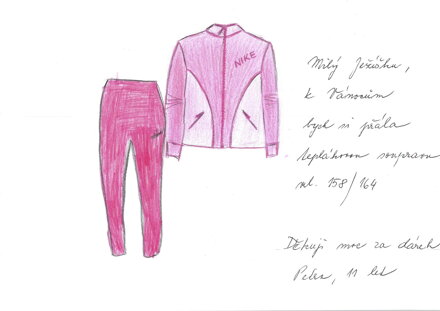 NIKE
Milý Ježíšku,
k Vánocům
bych si přála
teplákovou soupravu
vel. 158/164
Děkuji moc za dárek
Petra, 11 let